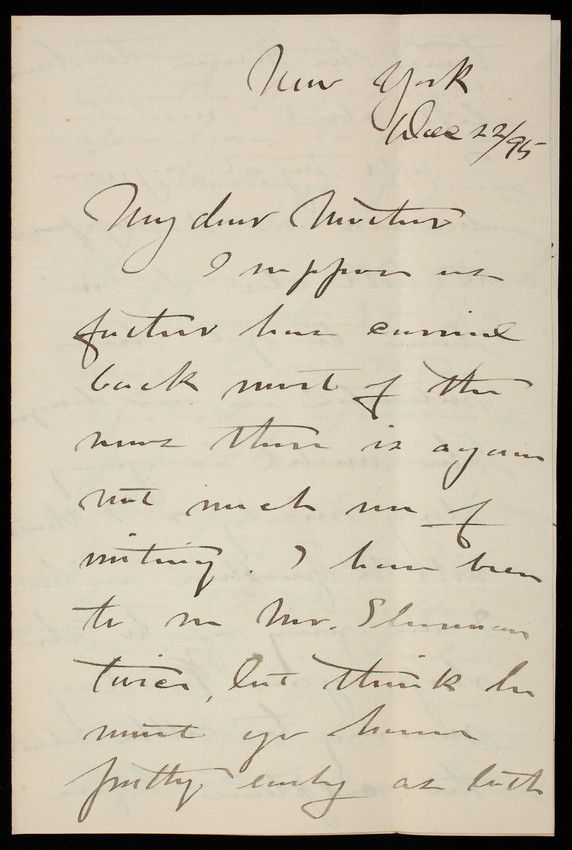 New York
Dec 22/95
My dear Mother
I suppose as
father has carried
back most of the
news there is again
not much use of
writing. I have been
to see Mr. Sherman
twice, but think he
must go home
pretty early as both